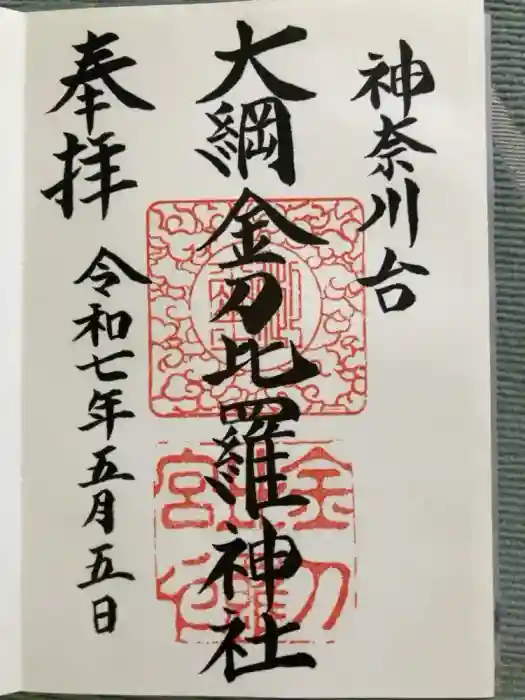 神奈川台
大綱金刀比羅神社
奉拝
令和七年五月五日